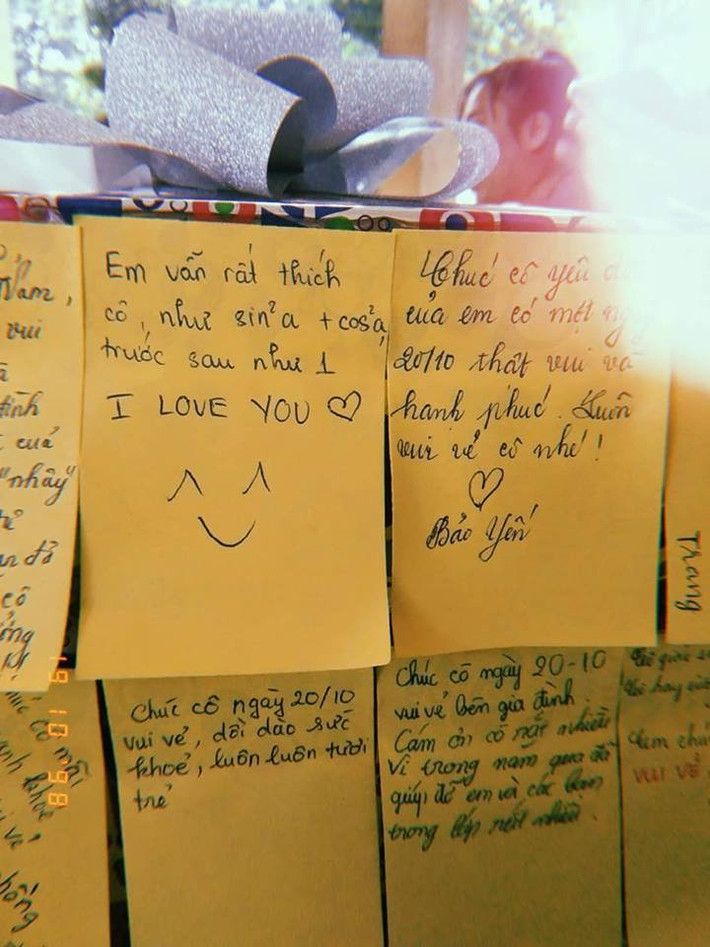 Nam,
vui
đình
cuả
"nhây"
đả
cô
Em vẫn rất thích
cô, như sin²a + cos²a,
trước sau như 1
I LOVE YOU ♡
Chúc cô yêu
của em có một
20/10 thật vui và
hanh phúc. Luôn
vui vẻ cô nhé!
♡
Bảo Yến
Thang
Chúc cô ngày 20/10
vui vẻ, dồi dào sức
khoẻ, luôn luôn tươi
trẻ
Chúc cô ngày 20-10
vui vẻ bên gia đình.
Cám ơn cô rất nhiều
Vì trong năm qua đã
giúp đỡ em và các bạn
trong lớp rất nhiều.
vui vẻ
19 10 '98